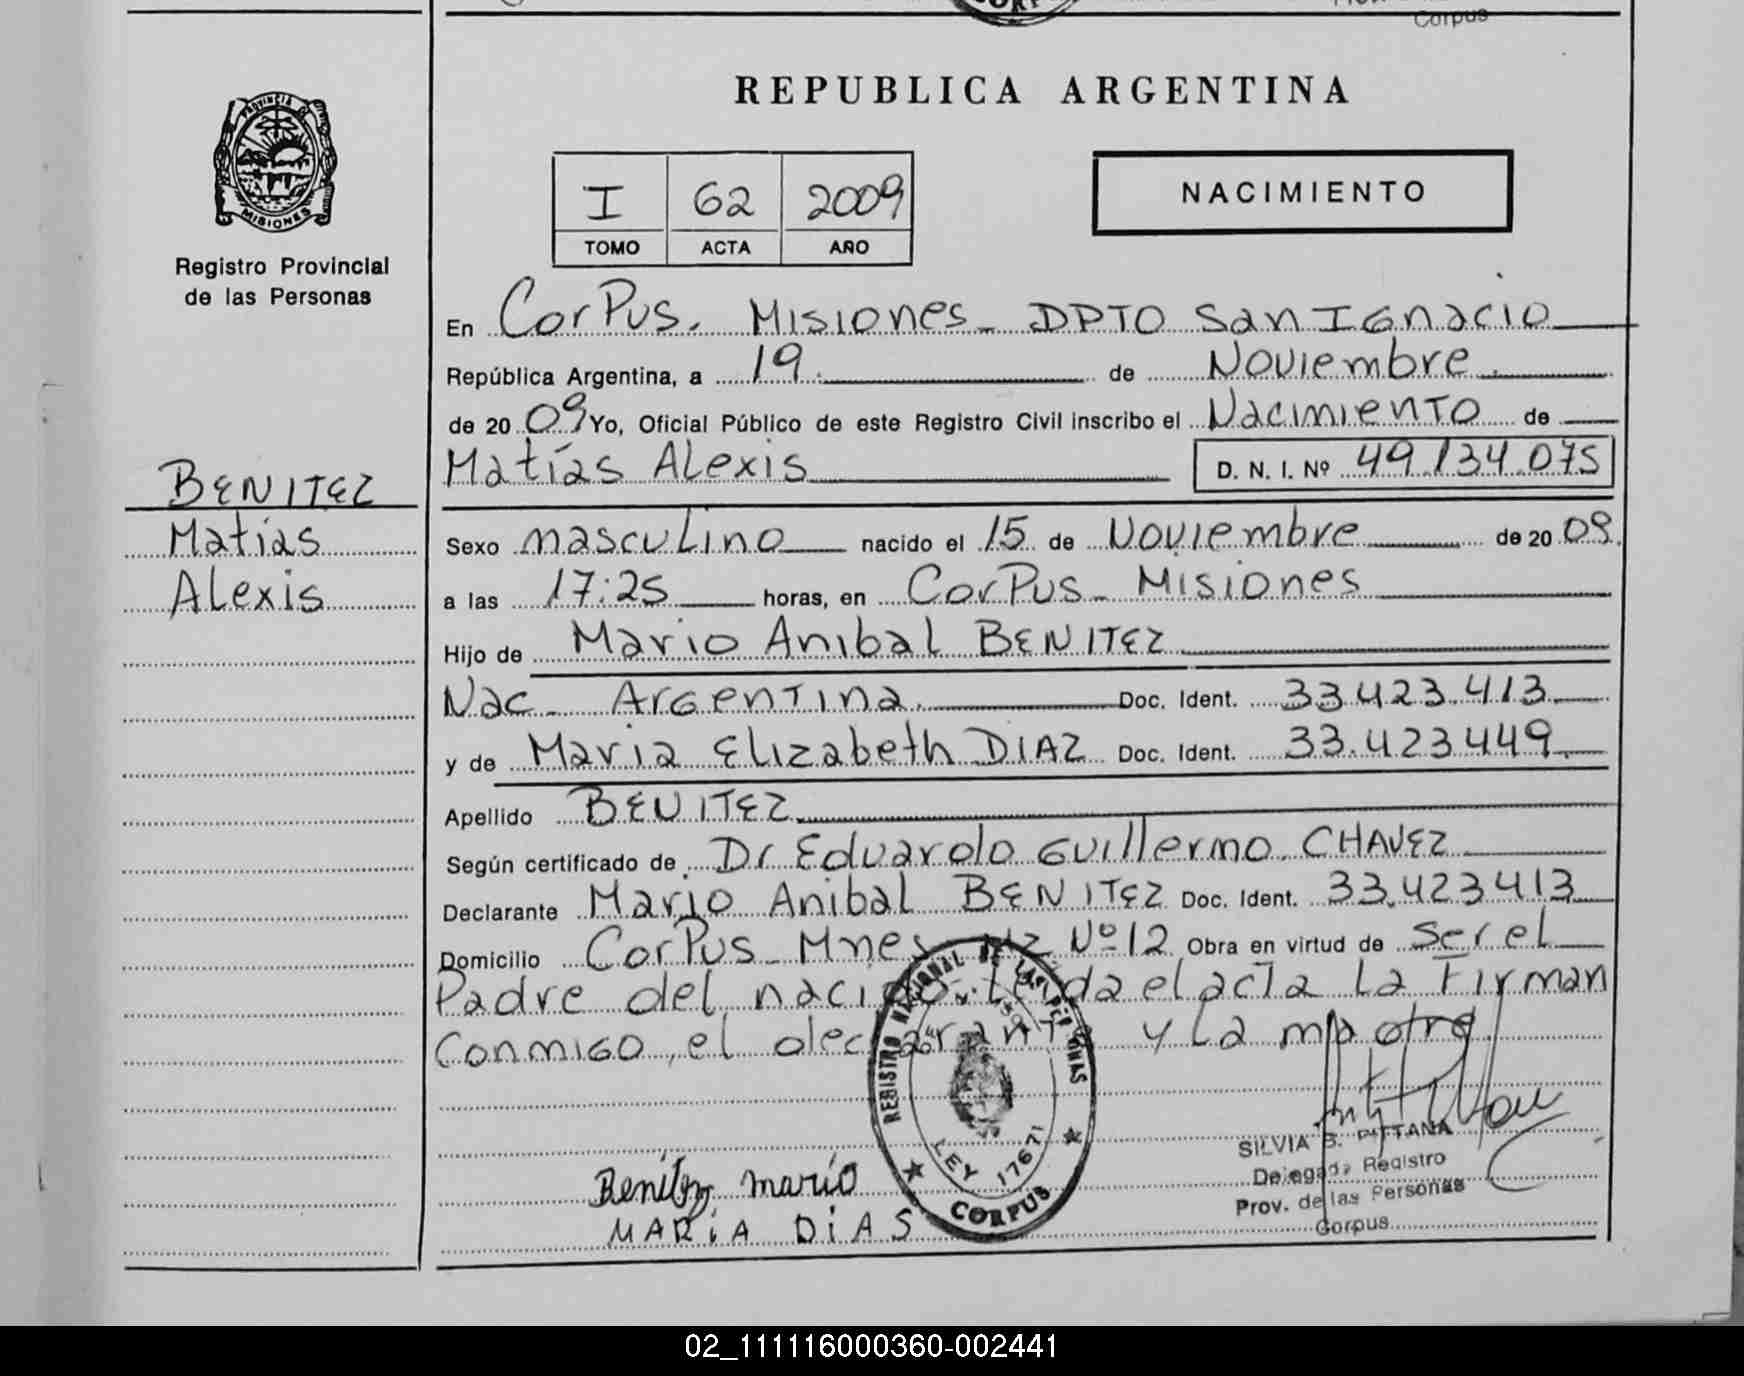 Corpus
REPUBLICA ARGENTINA
PROVINCIA DE
MISIONES
Registro Provincial
de las Personas
I 62 2009
TOMO ACTA AÑO
NACIMIENTO
En CorPus. Misiones - DPTO San Ignacio
República Argentina, a 19 de Noviembre
de 20 09 Yo, Oficial Público de este Registro Civil inscribo el Nacimiento de
Matías Alexis D. N. I. Nº 49.134.075
BENITEZ
Matías
Alexis
Sexo masculino nacido el 15 de Noviembre de 20 09.
a las 17:25 horas, en CorPus - Misiones
Hijo de Mario Anibal BENITEZ
Nac. Argentina. Doc. Ident. 33.423.413
y de Maria Elizabeth DIAZ Doc. Ident. 33.423449
Apellido BENITEZ
Según certificado de Dr Eduardo Guillermo CHAVEZ
Declarante Mario Anibal BENITEZ Doc. Ident. 33.423413
Domicilio CorPus - Mnes Mz Nº 12 Obra en virtud de Ser el
Padre del nacido. Leida el acta La Firman
Conmigo, el declarante y La madre
REGISTRO NACIONAL DE LAS PERSONAS
LEY 17671
CORPUS
SILVIA B. PITTANA
Delegada Registro
Prov. de las Personas
Corpus
Benitez mario
MARiA DiAS
02_111116000360-002441